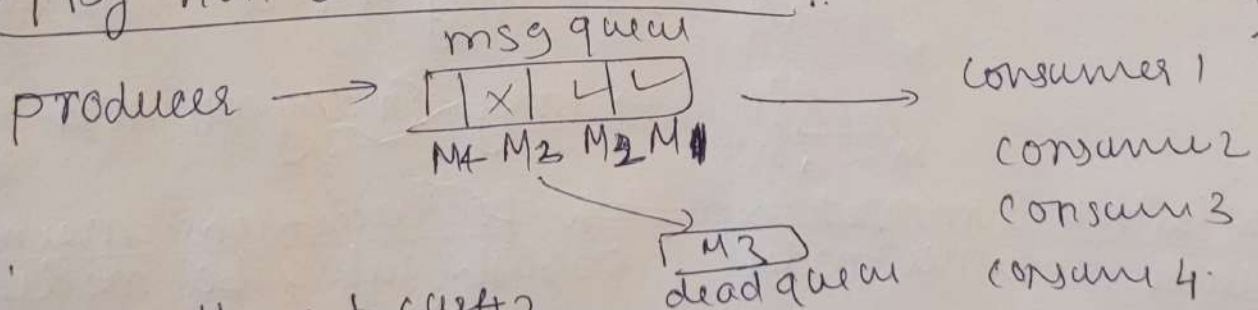 msg queue
producer → consumer 1
M4 M3 M2 M1
consumer 2
consumer 3
M3
dead queue consume 4.